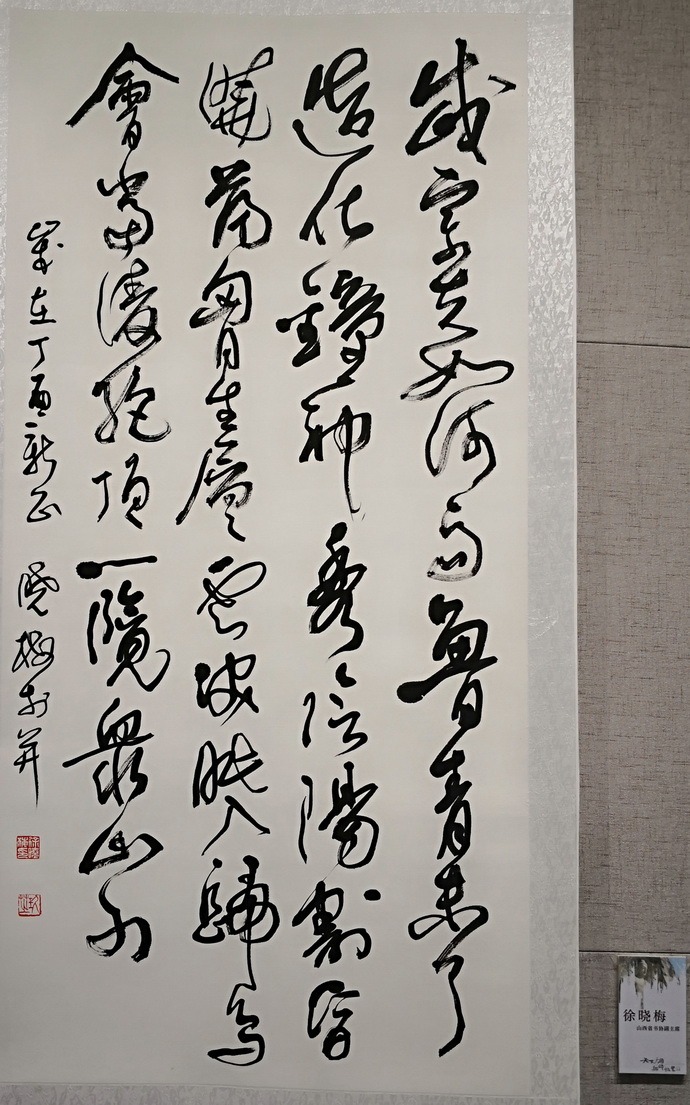 岱宗夫如何齊魯青未了
造化鍾神秀陰陽割昏
曉蕩胸生層雲決眥入歸鳥
會當凌絕頂一覽眾山小
歲在丁酉新正 曉梅於并
徐晓梅
山西省书协副主席